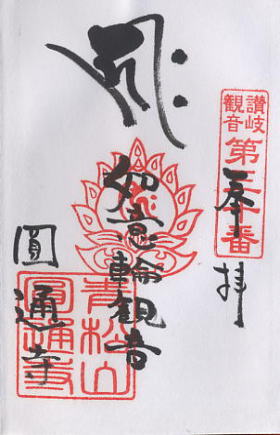 讃岐
観音
奉拝
如意輪観音
圓通寺
青松山
圓通寺